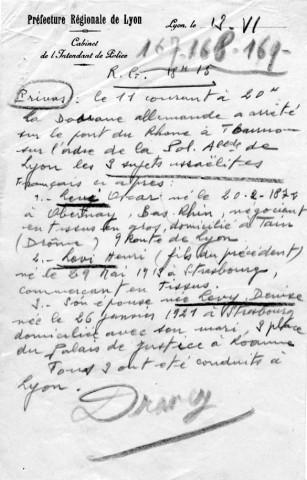 Préfecture Régionale de Lyon
Lyon, le 12-VI
Cabinet
de l'Intendant de Police
167-168-169-
R.G. 18H15
Privas: le 11 courant à 20H
la Douane allemande a arrêté
sur le pont du Rhône à
sur l'ordre de la Pol. Allde de
Lyon les 3 sujets israélites
Français ci après:
1.- Levi Oscar né le 20-2-1873
à Obernay, Bas Rhin, négociant
en tissus en gros, domicilié à Tain
(Drôme) 9 Route de Lyon
2.- Levi Henri (fils du précédent)
né le 29 Mai 1913 à Strasbourg,
commerçant en Tissus
3.- Son épouse née Levy Denise
née le 26 janvier 1921 à Strasbourg
domiciliée avec son mari, 3 place
du Palais de justice à Roanne
Tous 3 ont été conduits à
Lyon.
Drancy